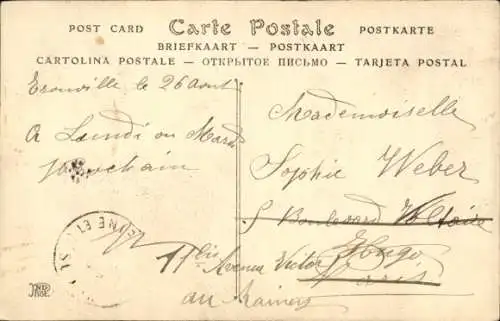 POST CARD Carte Postale POSTKARTE
BRIEFKAART — POSTKAART
CARTOLINA POSTALE — ОТКРЫТОЕ ПИСЬМО — TARJETA POSTAL
le 26 Aout
A Lundi ou Mardi
prochain
Mademoiselle
Sophie Weber
5 Boulevard Voltaire
11 bis Avenue Victor Hugo
Paris
SEINE ET